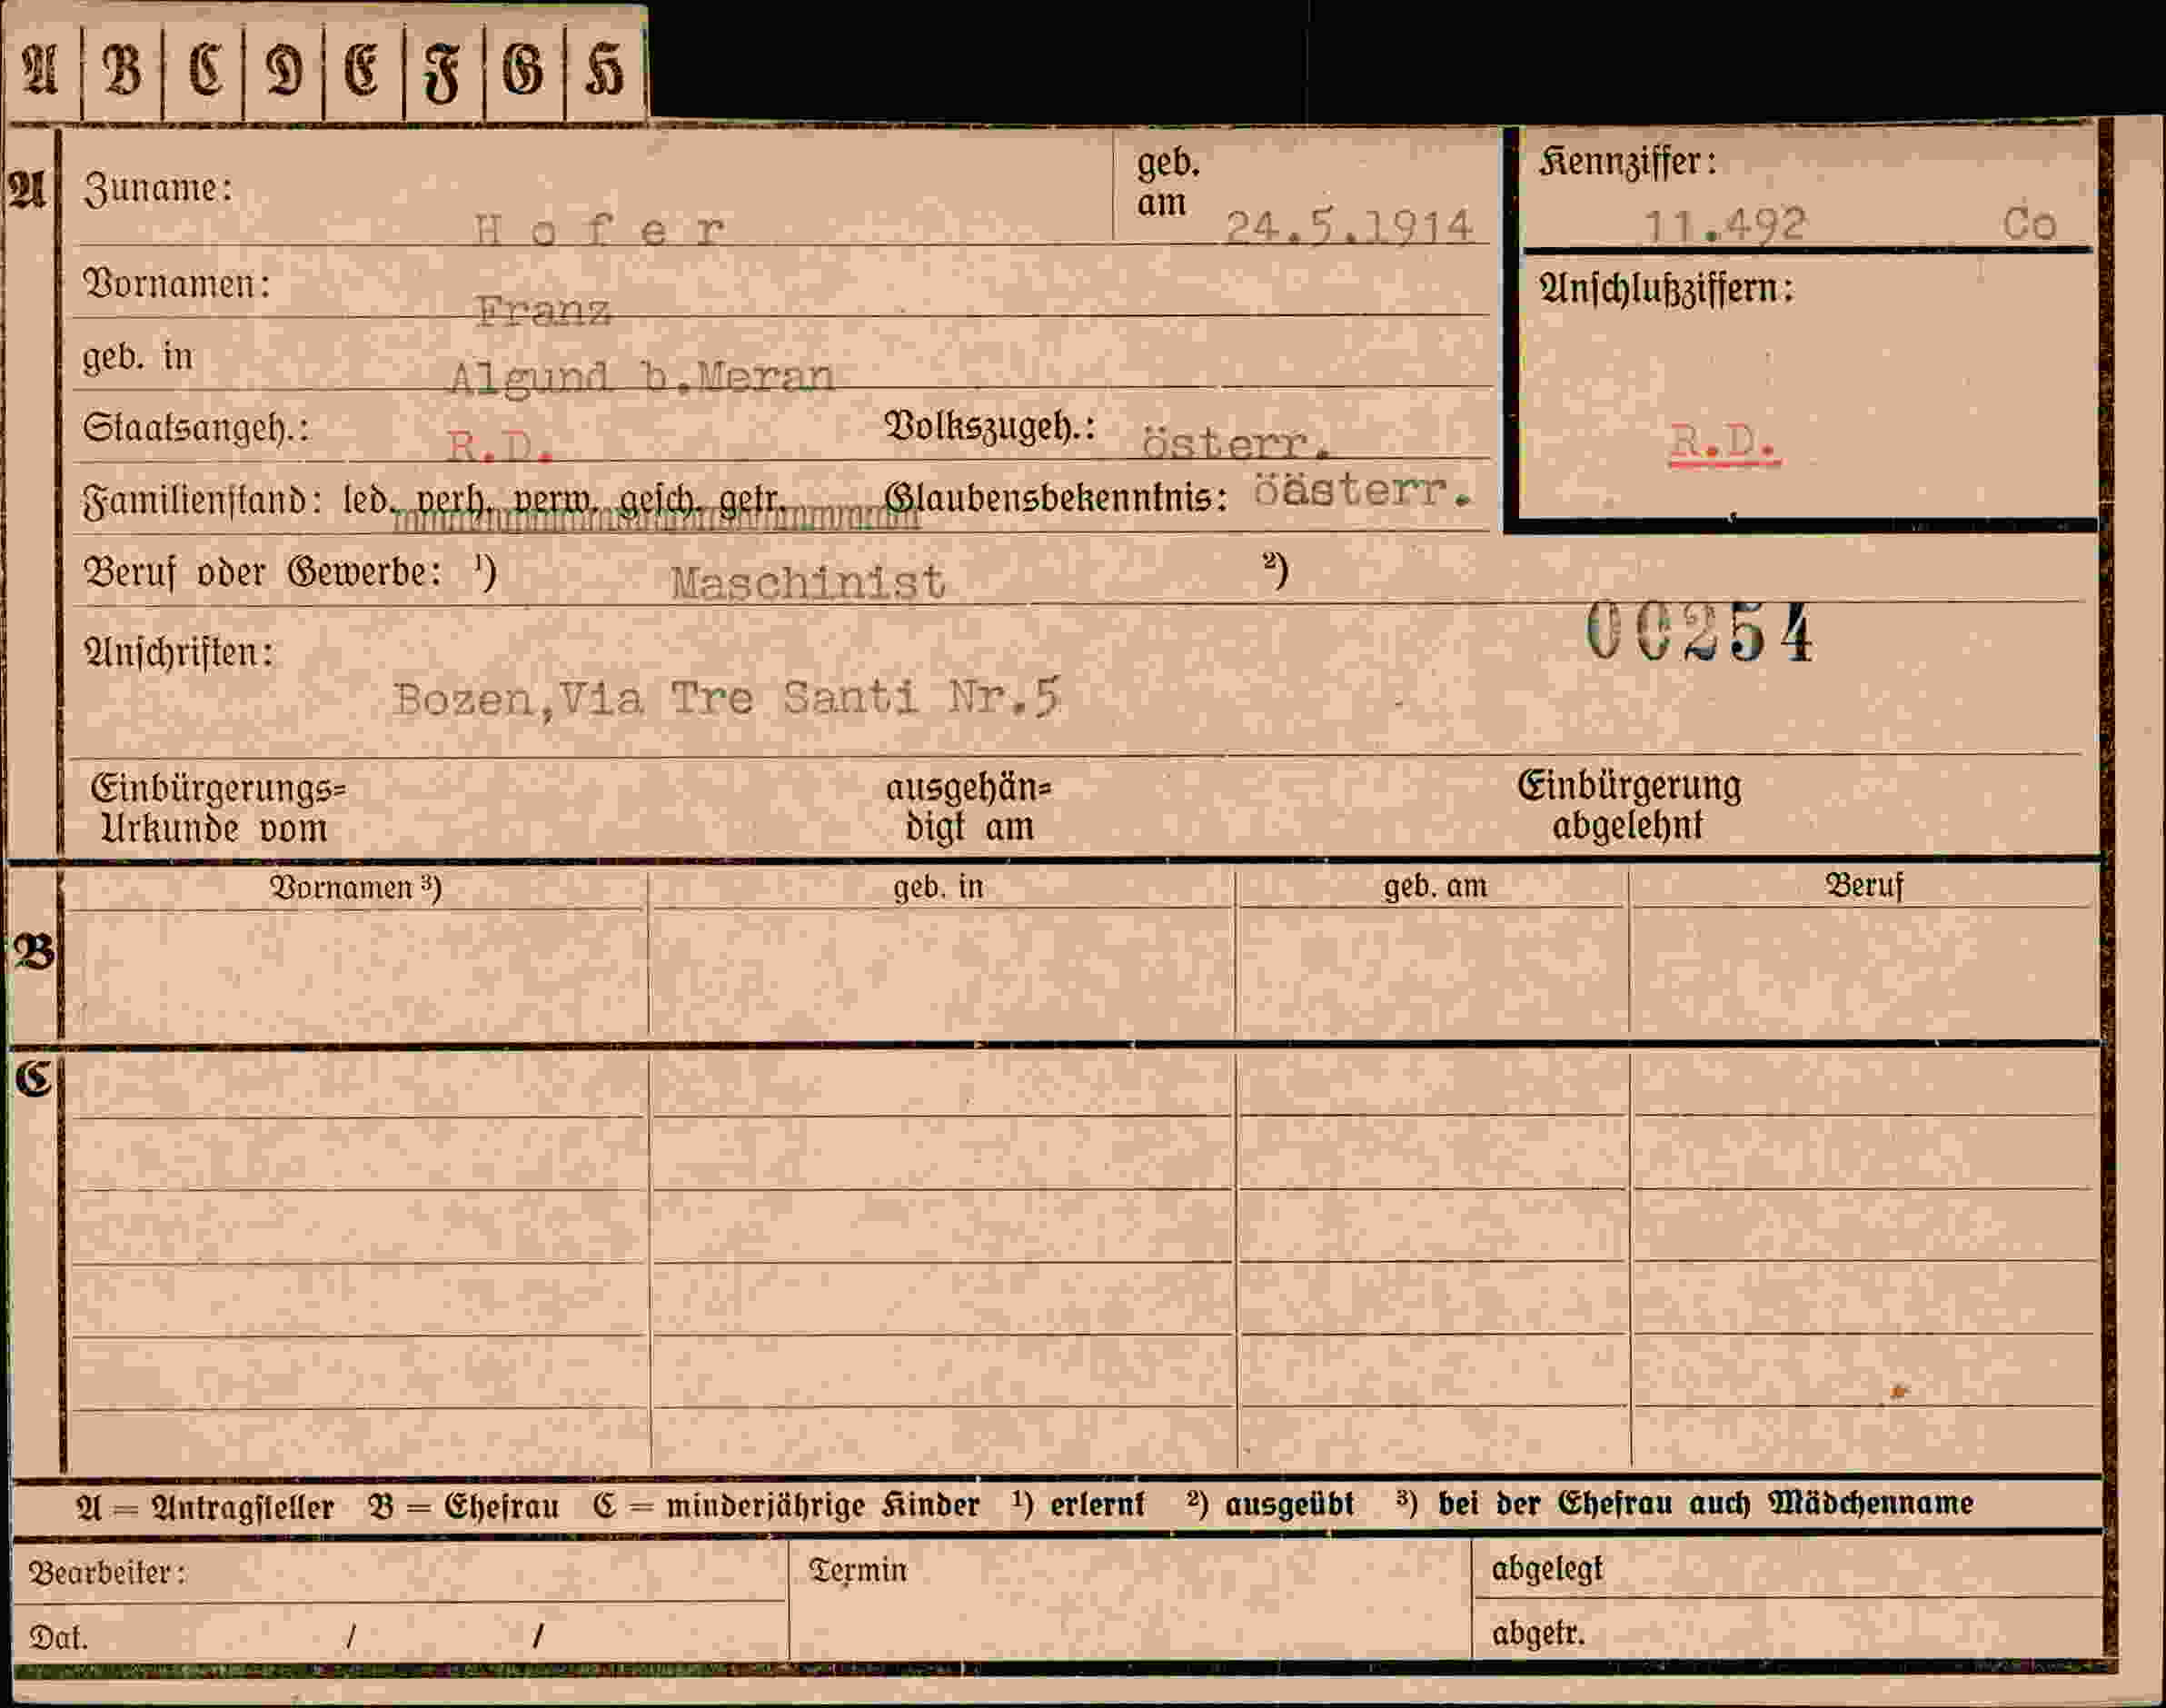 A B C D E F G H
A Zuname: H o f e r geb. am 24.5.1914
Kennziffer: 11.492 Co
Vornamen: Franz
Anschlußziffern:
geb. in Algund b.Meran
Staatsangeh.: R.D. Volkszugeh.: österr.
R.D.
Familienstand: led. verh. verw. gesch. getr. Glaubensbekenntnis: öästerr.
Beruf oder Gewerbe: ¹) Maschinist ²)
00254
Anschriften:
Bozen,Via Tre Santi Nr.5
Einbürgerungs= ausgehän= Einbürgerung
Urkunde vom digt am abgelehnt
Vornamen ³) geb. in geb. am Beruf
B
C
A = Antragsteller B = Ehefrau C = minderjährige Kinder ¹) erlernt ²) ausgeübt ³) bei der Ehefrau auch Mädchenname
Bearbeiter: Termin abgelegt
Dat. / / abgetr.